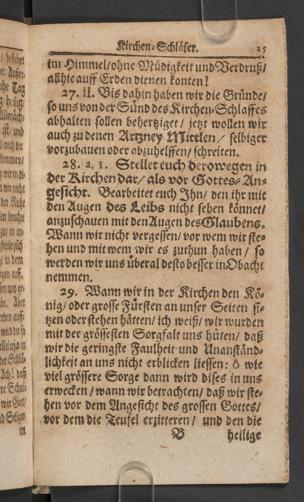 Kirchen-Schläfer. 25
im Himmel/ ohne Müdigkeit und Verdruß/
allhie auff Erden dienen konten!
27. II. Bis dahin haben wir die Gründe/
so uns von der Sünd des Kirchen-Schlaffes
abhalten sollen behertziget/ jetzt wollen wir
auch zu denen Artzney Mittlen/ selbiger
vorzubauen oder abzuhelffen/ schreiten.
28. a. 1. Stellet euch derowegen in
der Kirchen dar/ als vor Gottes-An-
gesicht. Bearbeitet euch Ihn/ den ihr mit
den Augen des Leibs nicht sehen könnet/
anzuschauen mit den Augen des Glaubens.
Wann wir nicht vergessen/ vor wem wir ste-
hen und mit wem wir es zuthun haben/ so
werden wir uns überal desto besser in Obacht
nemmen.
29. Wann wir in der Kirchen den Kö-
nig/ oder grosse Fürsten an unser Seiten si-
tzen oder stehen hätten/ ich weiß/ wir wurden
mit der grössesten Sorgfalt uns hüten/ daß
wir die geringste Faulheit und Unanständ-
lichkeit an uns nicht erblicken liessen: ô wie
viel grössere Sorge dann wird dises in uns
erwecken/ wann wir betrachten/ daß wir ste-
hen vor dem Angesicht des grossen Gottes/
vor dem die Teufel erzitteren/ und den die
B heilige